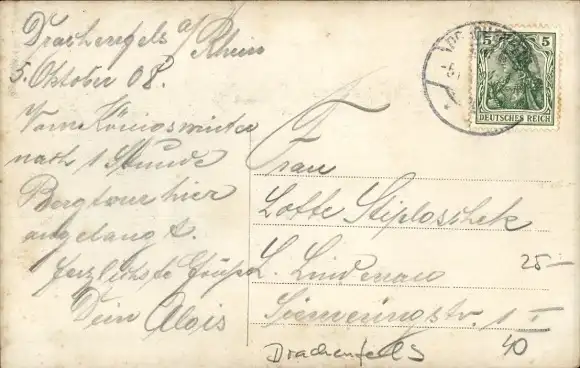 Drachenfels a/Rhein
5. Oktober 08.
Vom Königswinter
nach 1 Stunde
Bergtour hier
angelangt.
Herzlichste Grüße
Dein Alois
Frau
Lotte
L. Lindenau
1 I
25-
Drachenfels
40
5 5
DEUTSCHES REICH